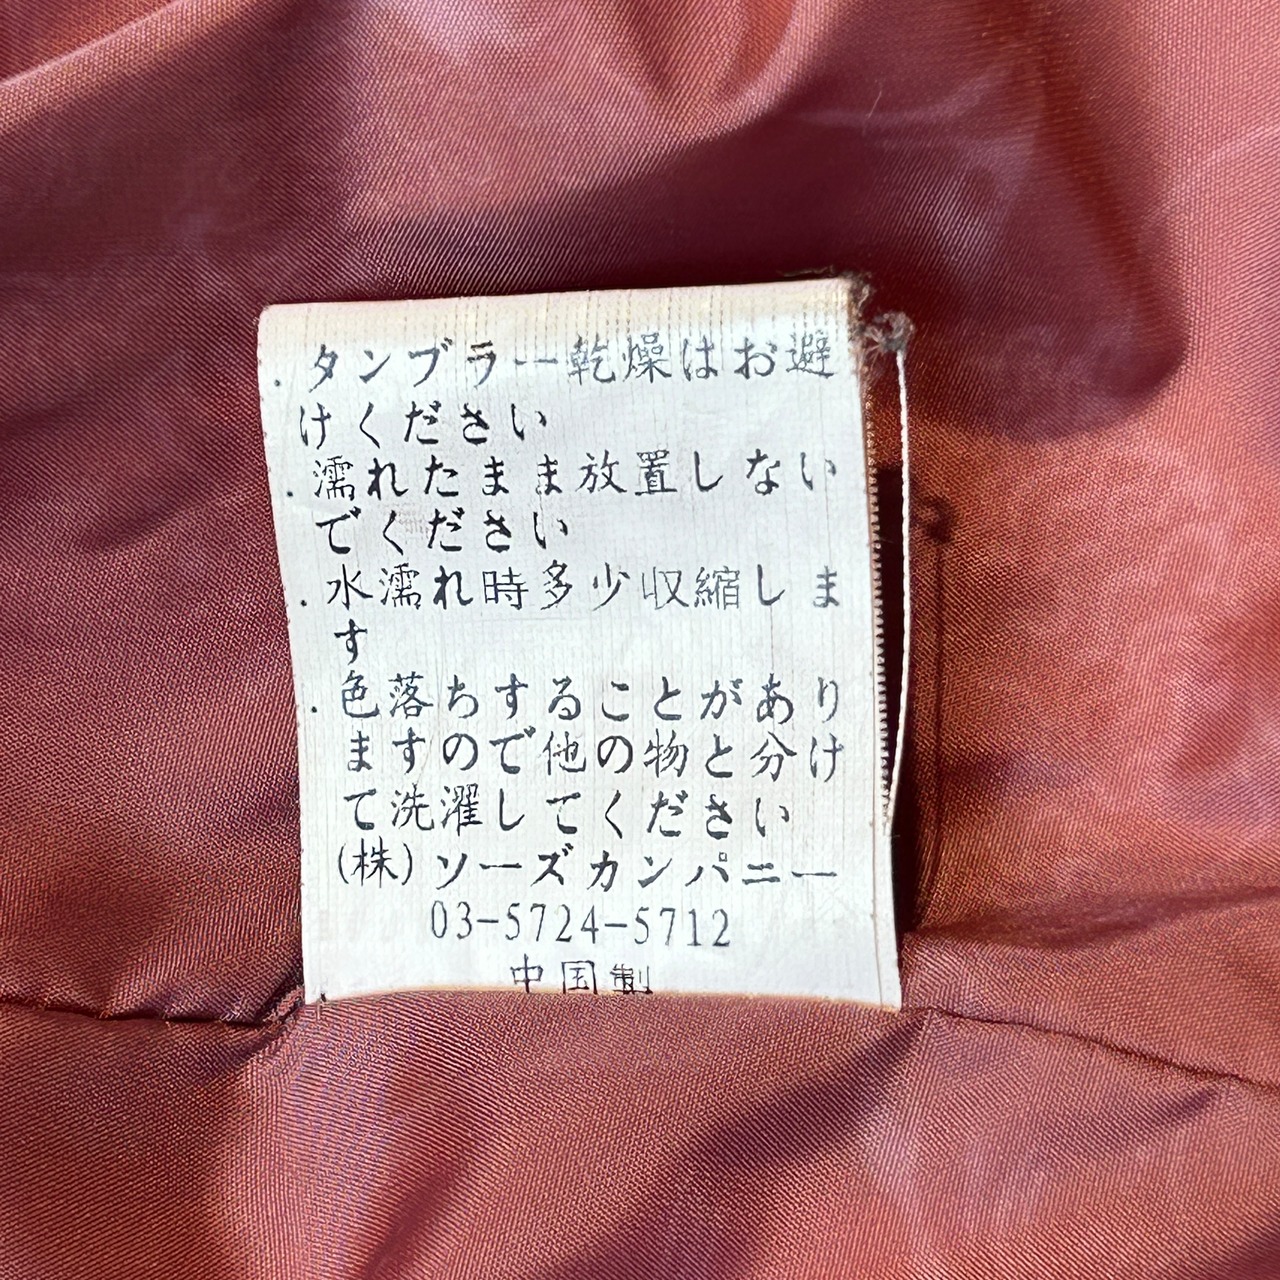 ．タンブラー乾燥はお避
けください
．濡れたまま放置しない
でください
．水濡れ時多少収縮しま
す
．色落ちすることがあり
ますので他の物と分け
て洗濯してください
(株)ソーズカンパニー
03-5724-5712
中国製